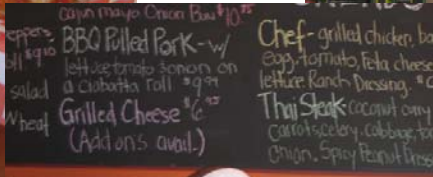 cajun mayo Onion Bun $10.75
eppers,
BBQ Pulled Pork - w/
oll $9.10
lettuce, tomato & onion on
a ciabatta roll $9.99
salad
Wheat
Grilled Cheese $6.95
(Add ons avail.)
Chef - grilled chicken, ba
egg, tomato, Feta cheese
lettuce. Ranch Dressing. $
Thai Steak - coconut curry
carrots, celery, cabbage, to
onion. Spicy Peanut Dress